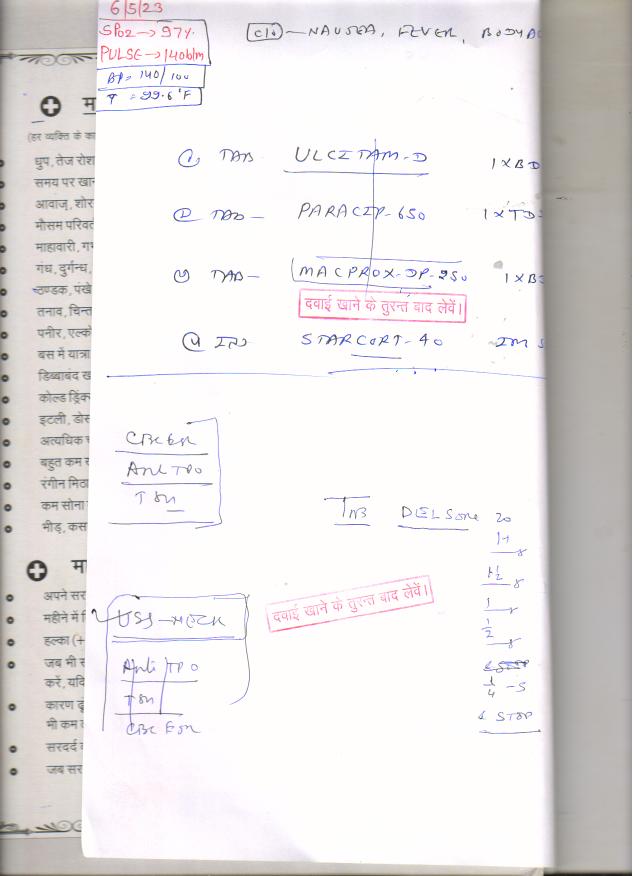 6/5/23
SPO2 → 97%
PULSE → 140b/m
BP = 140/100
T = 99.6°F
C/o — NAUSEA, FEVER, BODYA
① TAB ULCITAM-D 1 X BD
② TAB — PARACIP-650 1 X TD
③ TAB — MACPROX-DP-250 1 X B
दवाई खाने के तुरन्त बाद लेवें।
④ INJ STARCORT-40 IM
CBC ESR
Anti TPO
TSH
TAB DELSONE 20
1
1/2
STOP
1/4 - 5
& STOP
दवाई खाने के तुरन्त बाद लेवें।
USG -
Anti TPO
TSH
CBC ESR
(हर व्यक्ति के का
धुप, तेज रोश
समय पर खान
आवाज़, शोर
मौसम परिवर्त
माहावारी, गर्भ
गंध, दुर्गन्ध,
ठण्डक, पंखे
तनाव, चिन्त
पनीर, एल्को
बस में यात्रा
डिब्बाबंद ख
कोल्ड ड्रिंक
इटली, डोस
अत्यधिक
बहुत कम
रंगीन मिठा
कम सोना
भीड़, कस
मा
अपने सर
महीने में
हल्का (+
जब भी स
करें, यदि
कारण ढू
भी कम
सरदर्द
जब सर